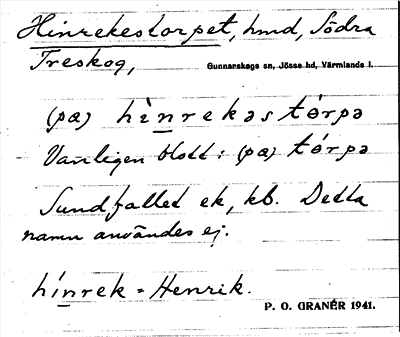 Hinrekestorpet, hmd, Södra
Treskog,
Gunnarskogs sn, Jösse hd, Värmlands l.
(pa) hìnrekəstórpə
Vanligen blott: (pa) tórpə
Sundfallet ek, kb. Detta
namn användes ej.
hínrek = Henrik.
P. O. GRANÉR 1941.